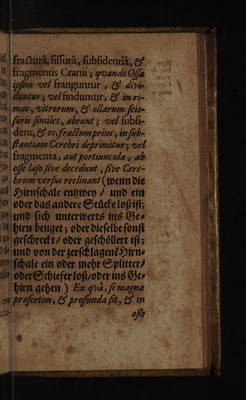 fracturâ, fissurâ, subsidentiâ, &
fragmentis Cranii; qvando Ossa
ipsum vel franguntur, & divi-
duntur; vel finduntur, & in ri-
mas, vitrorum, & ollarum scis-
suris similes, abeunt; vel subsi-
dent, & os, fractum prius, in sub-
stantiam Cerebri deprimitur; vel
fragmenta, aut portiuncula, ab
osse læso sive decedunt, sive Cere-
brum versus reclinant (wenn die
Hirnschale entzwey / und ein
oder das andere Stücke loß ist;
und sich unterwerts ins Ge-
hirn beuget; oder dieselbe sonst
geschreckt / oder geschellert ist;
und von der zerschlagenē Hirn-
schale ein oder mehr Splitter /
oder Schiefer loß / oder ins Ge-
hirn gehen) Ex qvâ, si magna
præsertim, & profunda sit, & in
osse